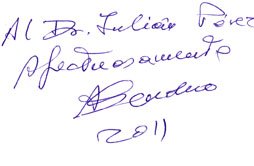 Al Dr. Julián Pérez
Afectuosamente
2011